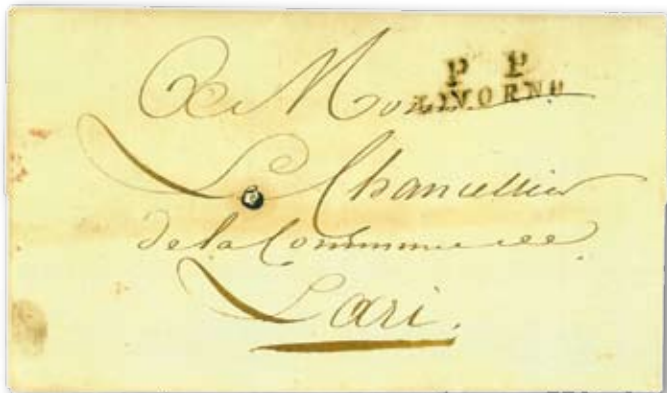 P P
LIVORNO
A Mon
Le Chancellier
de la Commune
Lari.